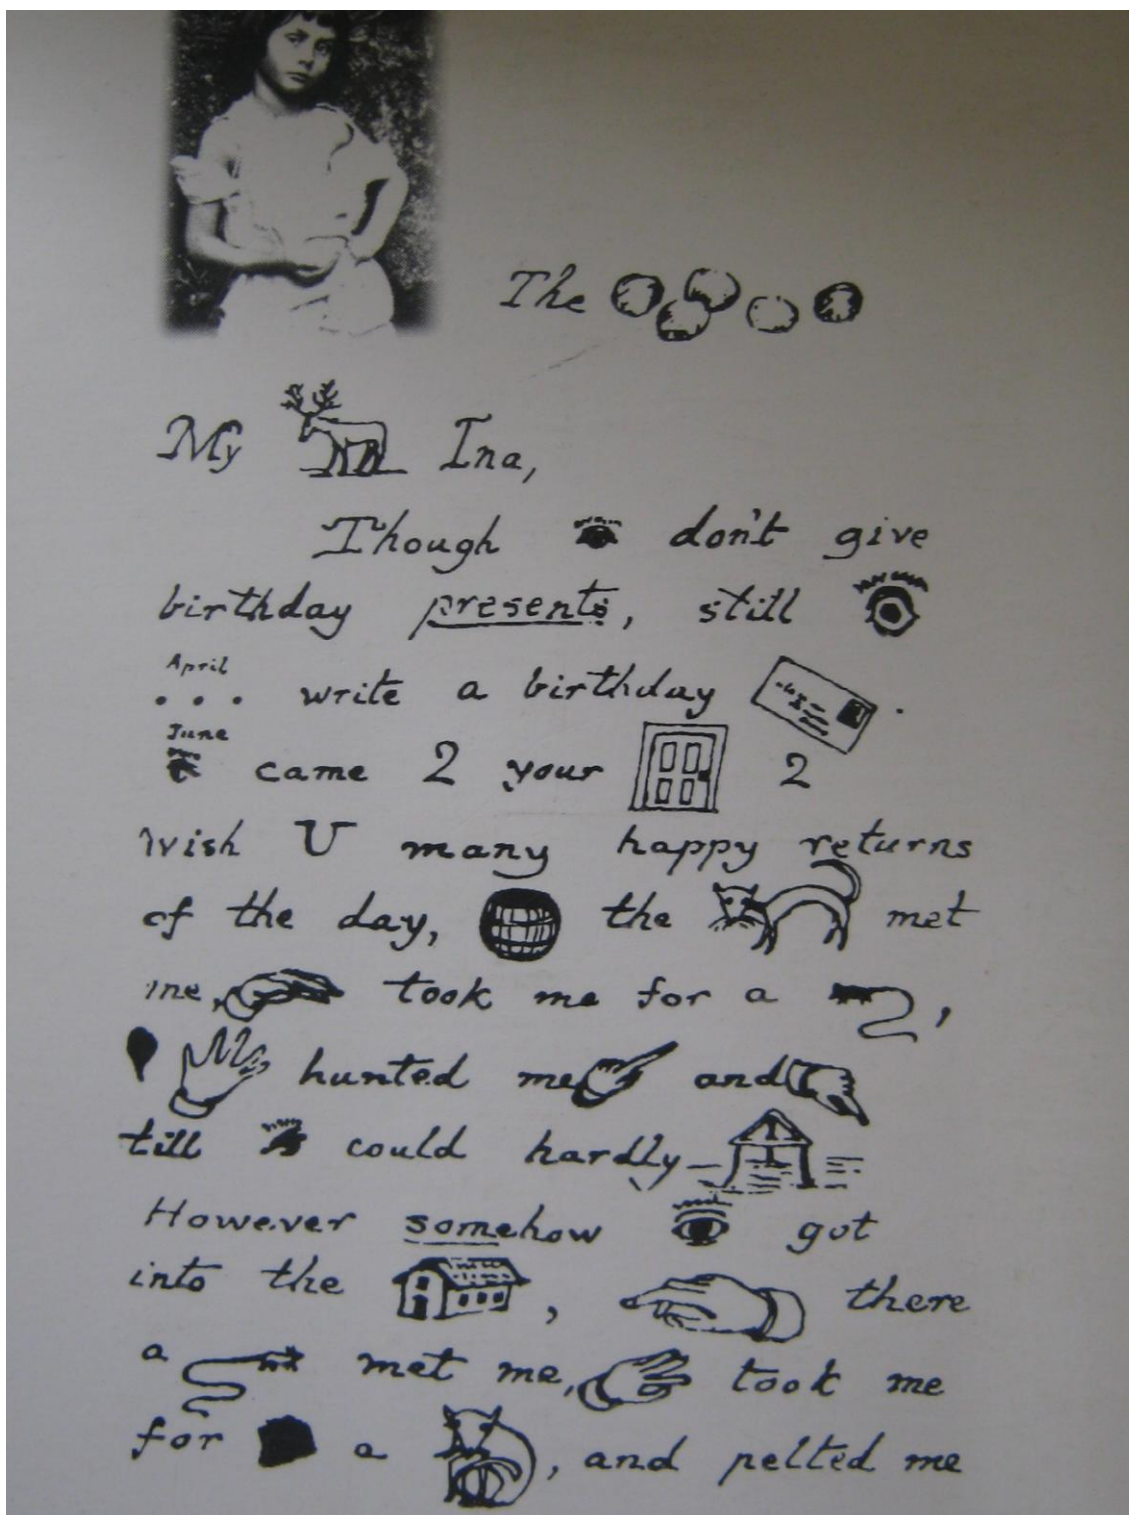 The
My Ina,
Though don't give
birthday presents, still
April
... write a birthday .
June
came 2 your 2
wish U many happy returns
of the day, the met
me, took me for a ,
hunted me and
till could hardly –
However somehow got
into the , there
a met me, took me
for a , and pelted me